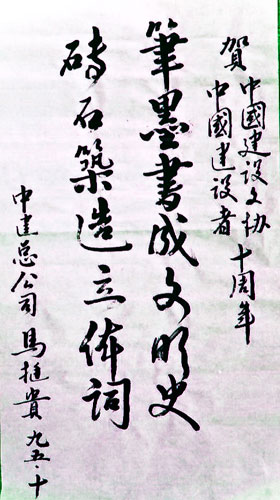 賀中國建设文协十周年
中國建设者
筆墨書成文明史
磚石築造立体詞
中建总公司馬挺貴九五·十